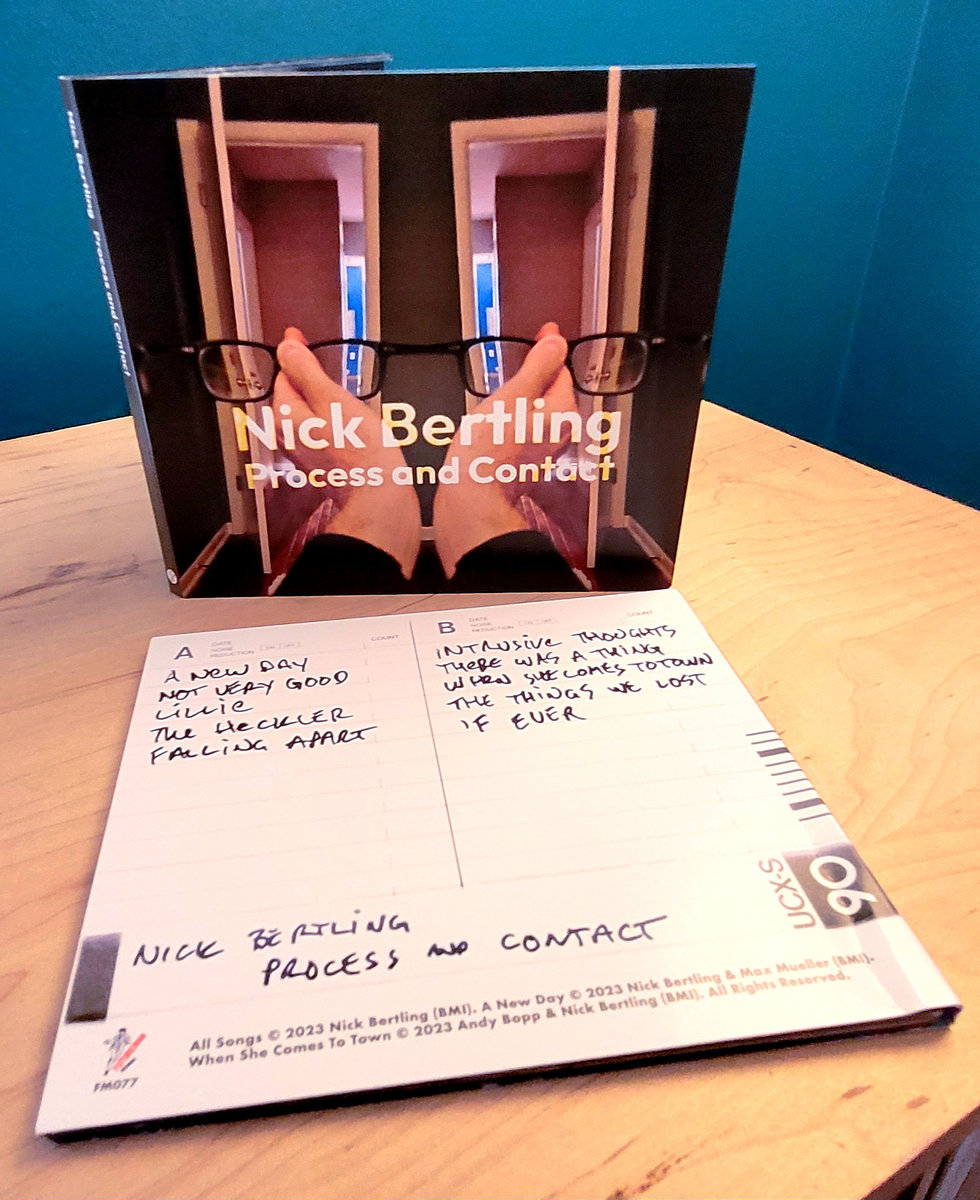 Nick Bertling Process and Contact
Nick Bertling
Process and Contact
A
DATE
NOISE
REDUCTION
ON OFF
COUNT
A NEW DAY
NOT VERY GOOD
LiLLie
THe HeCKLER
FALLiNG APART
B
DATE
NOISE
REDUCTION
ON OFF
COUNT
iNTRUSiVe THOUGHTS
THERE WAS A THiNG
WHEN SHE COMES TO TOWN
THE THiNGS We LOST
iF EVER
UCX-S
90
NICK BERTLiNG
PROCESS AND CONTACT
All Songs © 2023 Nick Bertling (BMI). A New Day © 2023 Nick Bertling & Max Mueller (BMI).
When She Comes To Town © 2023 Andy Bopp & Nick Bertling (BMI). All Rights Reserved.
FM077